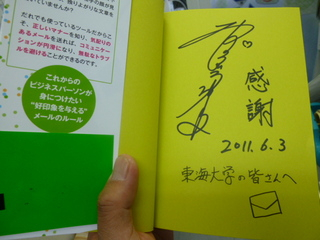 いていませんか？
だれでも使っているツールだからこ
そ、正しいマナーを知り、気配りの
あるメールを送れば、コミュニケー
ションが円滑になり、無駄なトラブ
ルを避けることができるのです。
これからの
ビジネスパーソンが
身につけたい
“好印象を与える”
メールのルール
感謝
2011.6.3
東海大学の皆さんへ